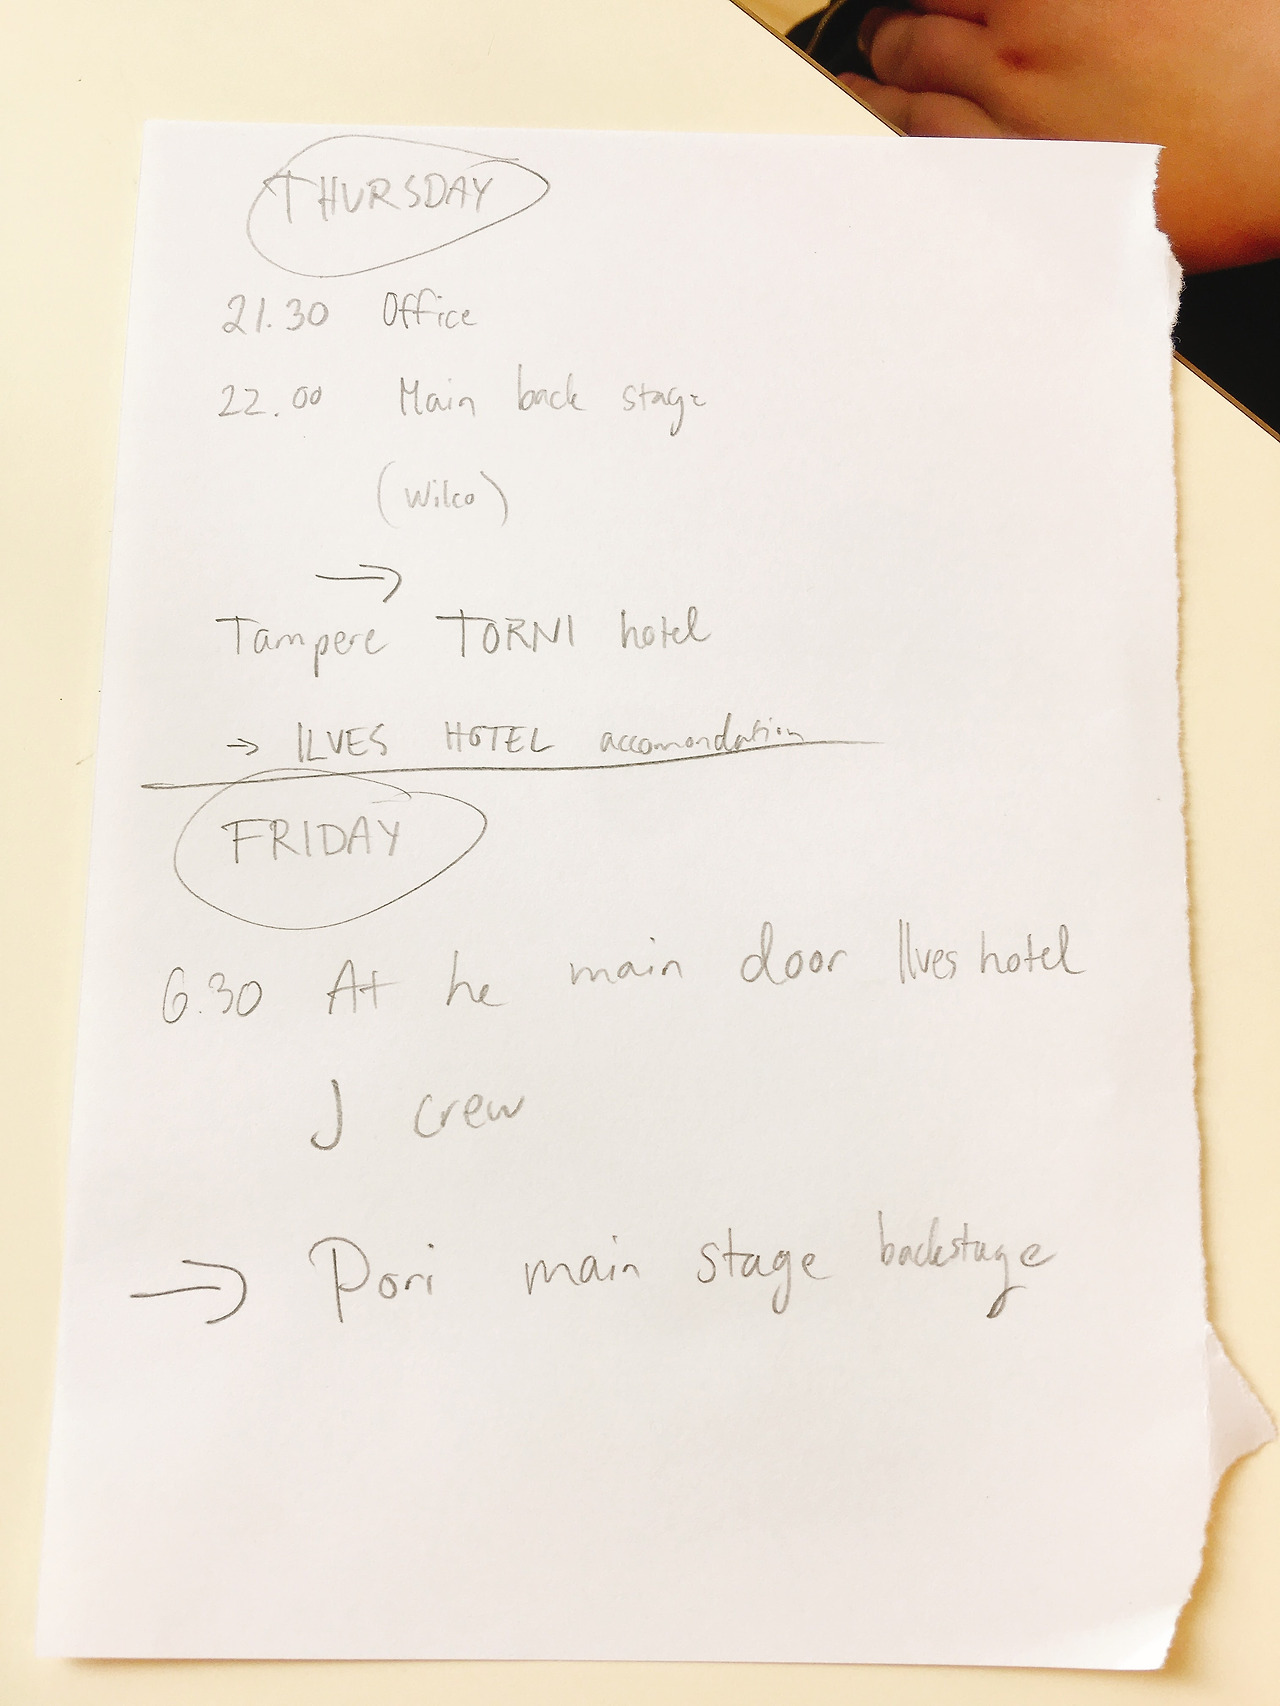 THURSDAY
21.30 Office
22.00 Main back stage
(Wilco)
→
Tampere TORNI hotel
→ ILVES HOTEL accomondation
FRIDAY
6.30 At he main door Ilves hotel
J crew
→ Pori main stage backstage